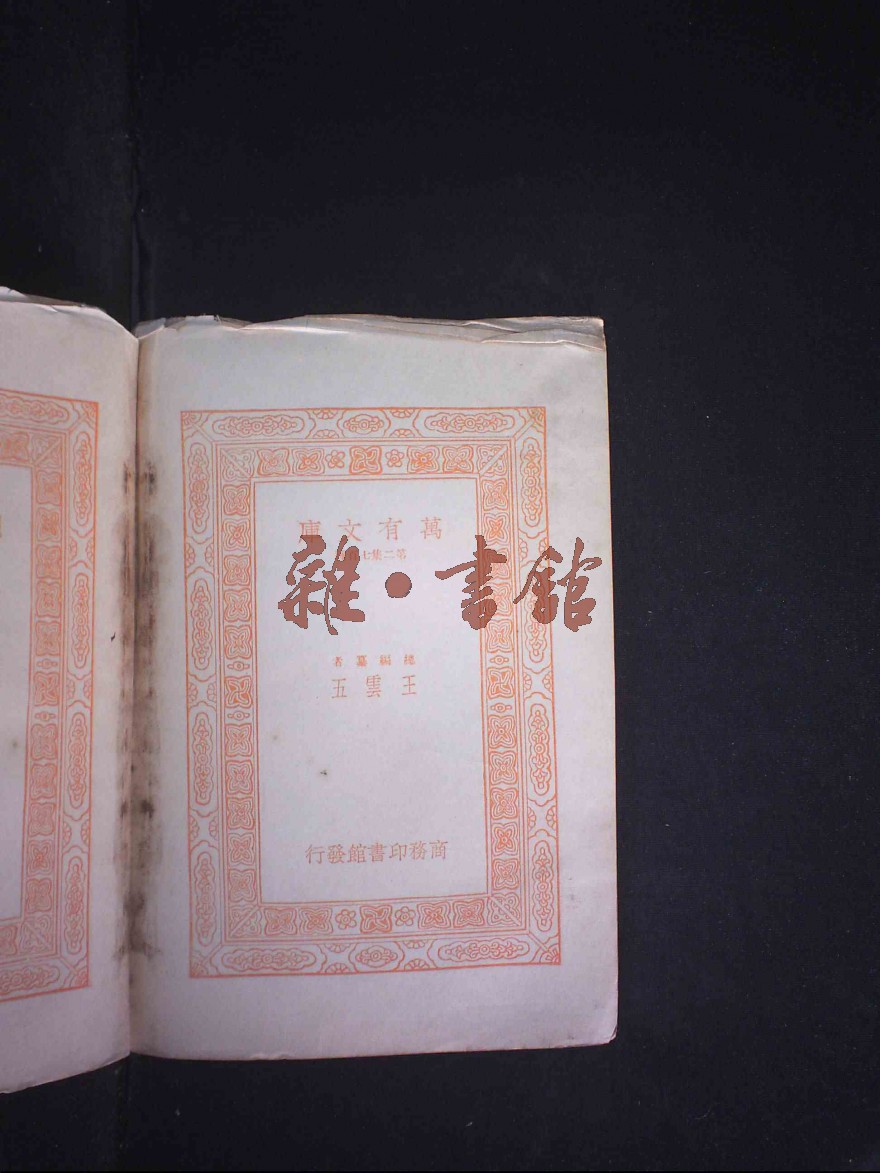 萬有文庫
第二集七
雜·書館
總編纂者
王雲五
商務印書館發行